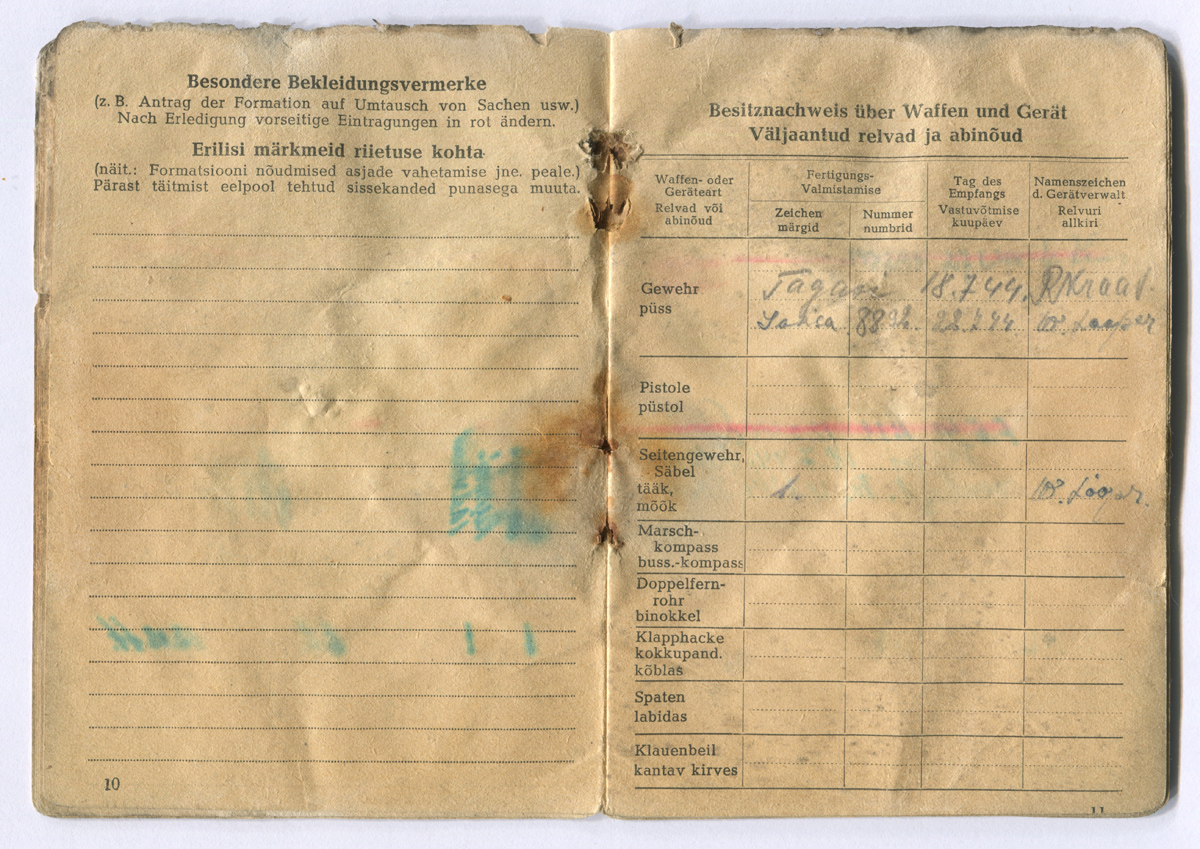 Besondere Bekleidungsvermerke
(z. B. Antrag der Formation auf Umtausch von Sachen usw.)
Nach Erledigung vorseitige Eintragungen in rot ändern.
Erilisi märkmeid riietuse kohta
(näit.: Formatsiooni nõudmised asjade vahetamise jne. peale.)
Pärast täitmist eelpool tehtud sissekanded punasega muuta.
10
Besitznachweis über Waffen und Gerät
Väljaantud relvad ja abinõud
Waffen- oder
Geräteart
Relvad või
abinõud
Fertigungs-
Valmistamise
Zeichen
märgid
Nummer
numbrid
Tag des
Empfangs
Vastuvõtmise
kuupäev
Namenszeichen
d. Gerätverwalt
Relvuri
allkiri
Gewehr
püss
18.7.44.
22.7.44
Pistole
püstol
Seitengewehr,
Säbel
tääk,
mõõk
1.
Marsch-
kompass
buss.-kompass
Doppelfern-
rohr
binokkel
Klapphacke
kokkupand.
kõblas
Spaten
labidas
Klauenbeil
kantav kirves
11